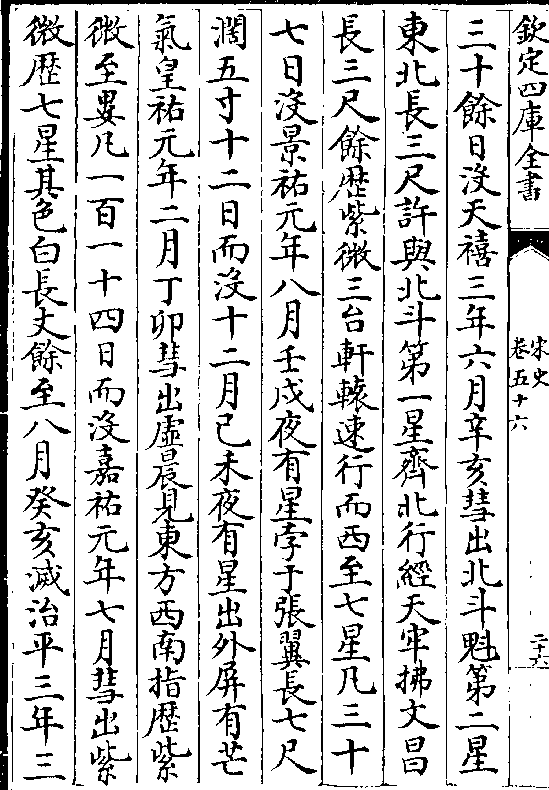 欽定四庫全書
宋史
卷五十六
二十六
三十餘日沒天禧三年六月辛亥彗出北斗魁第二星
東北長三尺許與北斗第一星齊北行經天牢拂文昌
長三尺餘歴紫微三台軒轅速行而西至七星凡三十
七日沒景祐元年八月壬戌夜有星孛于張翼長七尺
濶五寸十二日而沒十二月己未夜有星出外屏有芒
氣皇祐元年二月丁卯彗出虚晨見東方西南指歴紫
微至婁凡一百一十四日而沒嘉祐元年七月彗出紫
微歴七星其色白長丈餘至八月癸亥滅治平三年三